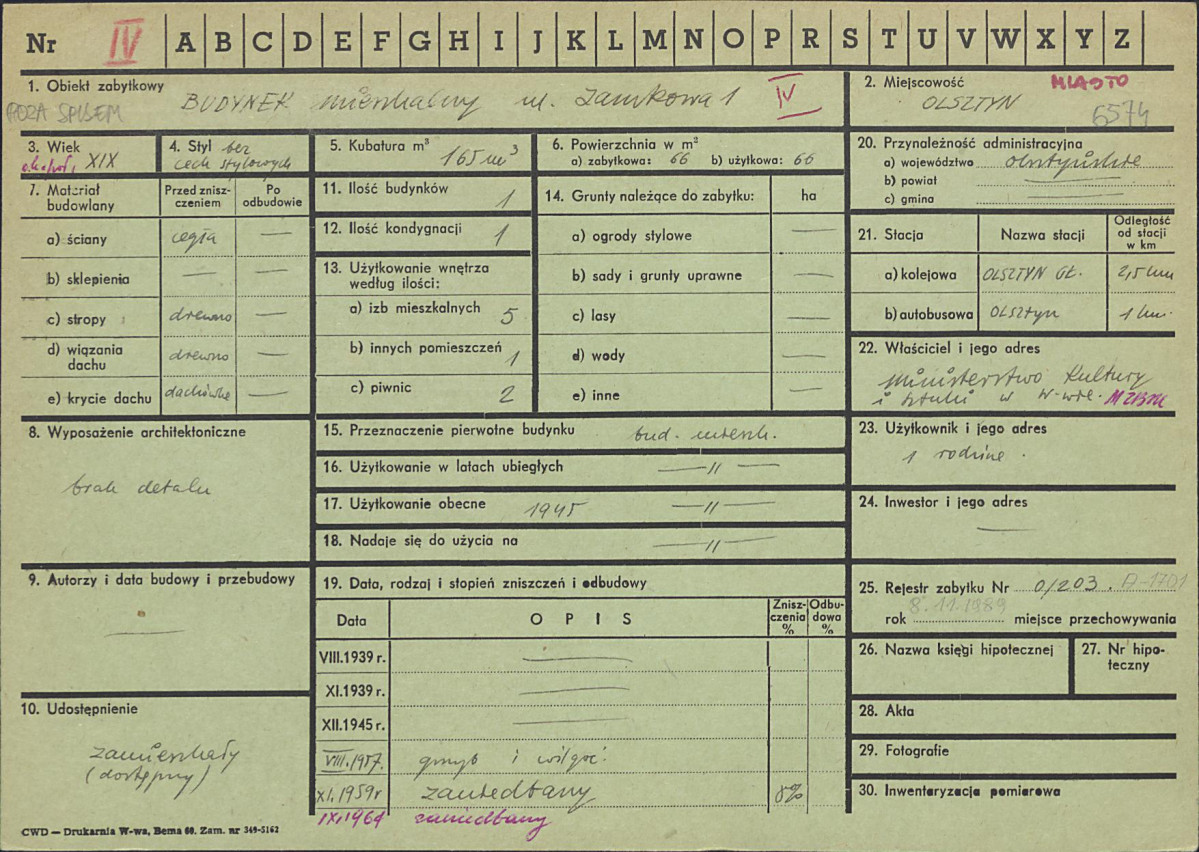 Nr IV A B C D E F G H I J K L M N O P R S T U V W X Y Z
1. Obiekt zabytkowy
POZA SPISEM BUDYNEK mieszkalny ul. Zamkowa 1 IV
2. Miejscowość MIASTO
OLSZTYN 6574
3. Wiek
XIX
4. Styl bez
cech stylowych
5. Kubatura m³
165 m³
6. Powierzchnia w m²
a) zabytkowa: 66 b) użytkowa: 66
20. Przynależność administracyjna
a) województwo olsztyńskie
b) powiat —
c) gmina —
7. Materiał budowlany
Przed zniszczeniem
Po odbudowie
a) ściany cegła —
b) sklepienia — —
c) stropy drewno —
d) wiązania dachu drewno —
e) krycie dachu dachówka —
11. Ilość budynków 1
12. Ilość kondygnacji 1
13. Użytkowanie wnętrza
według ilości:
a) izb mieszkalnych 5
b) innych pomieszczeń 1
c) piwnic 2
14. Grunty należące do zabytku: ha
a) ogrody stylowe —
b) sady i grunty uprawne —
c) lasy —
d) wody —
e) inne —
21. Stacja Nazwa stacji Odległość od stacji w km
a) kolejowa OLSZTYN GŁ. 2,5 km
b) autobusowa OLSZTYN 1 km.
22. Właściciel i jego adres
Ministerstwo Kultury
i Sztuki w W-wie.
8. Wyposażenie architektoniczne
brak detalu
15. Przeznaczenie pierwotne budynku bud. mieszk.
16. Użytkowanie w latach ubiegłych — " —
17. Użytkowanie obecne 1945 — " —
18. Nadaje się do użycia na — " —
23. Użytkownik i jego adres
1 rodzina.
24. Inwestor i jego adres
—
9. Autorzy i data budowy i przebudowy
—
19. Data, rodzaj i stopień zniszczeń i odbudowy
Data OPIS Zniszczenia % Odbudowa %
VIII.1939 r. —
XI.1939 r. —
XII.1945 r. —
VIII.1957. grzyb i wilgoć.
XI.1959 r zaniedbany 8%
IX.1964 zaniedbany
25. Rejestr zabytku Nr 0/203. A-1701
8.11.1989
rok miejsce przechowywania
26. Nazwa księgi hipotecznej
27. Nr hipoteczny
10. Udostępnienie
zamieszkały
(dostępny)
28. Akta
29. Fotografie
30. Inwentaryzacja pomiarowa
CWD — Drukarnia W-wa, Bema 60. Zam. nr 349-5162